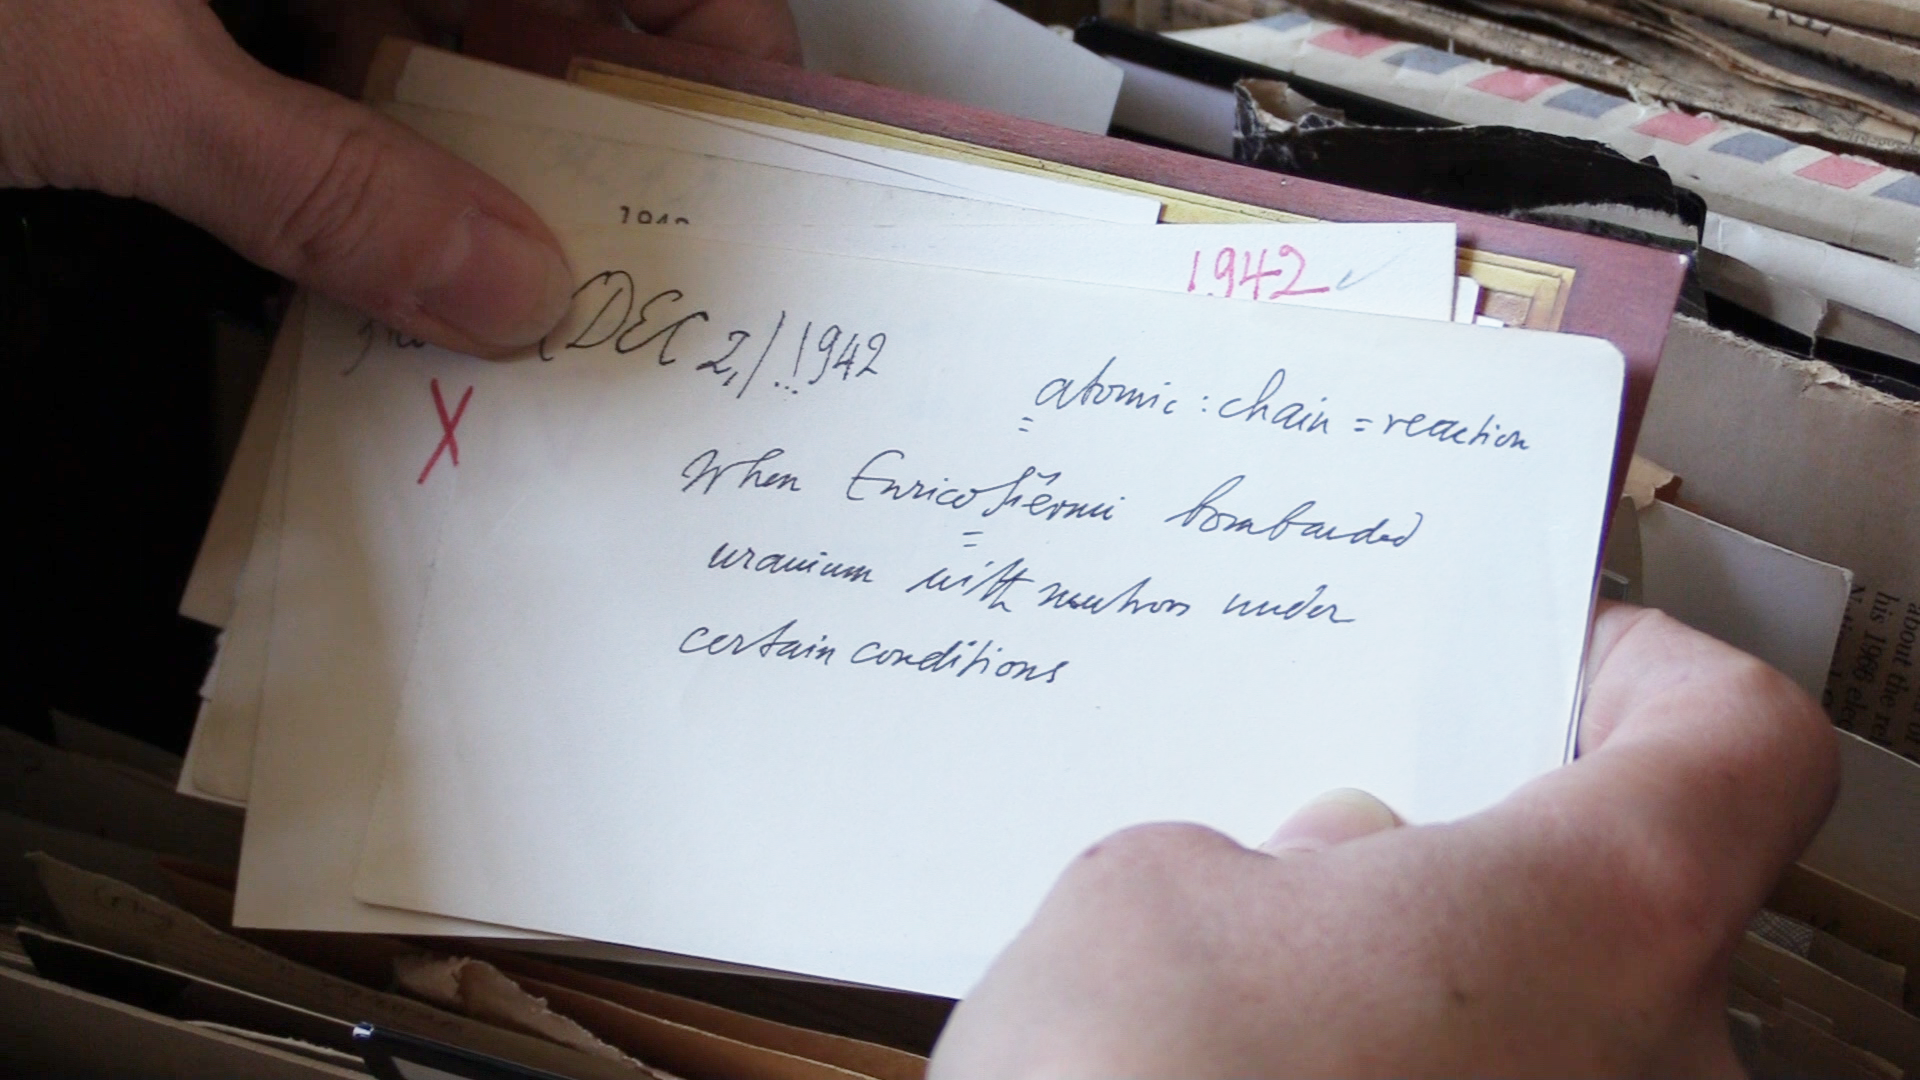 1942
(DEC 2,) !..1942
X
= atomic : chain = reaction
When Enrico Fermi bombarded
=
uranium with neutrons under
certain conditions
about the
his 1966